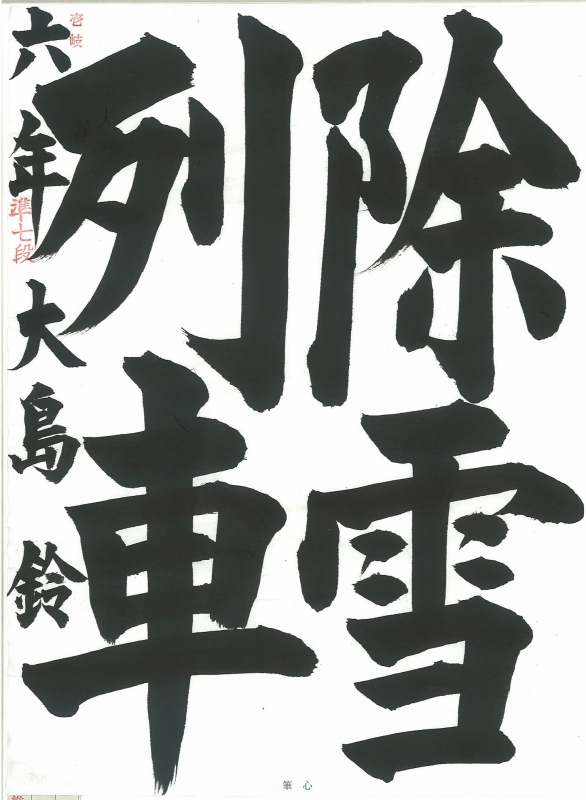 除雪
列車
六年 大島 鈴
壱岐
準七段
心筆